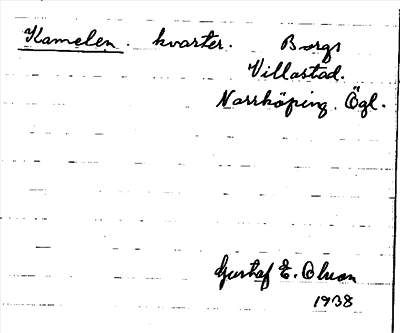 Kamelen. kvarter. Borgs
Villastad.
Norrköping. Ögl.
Gustaf E. Olson
1938